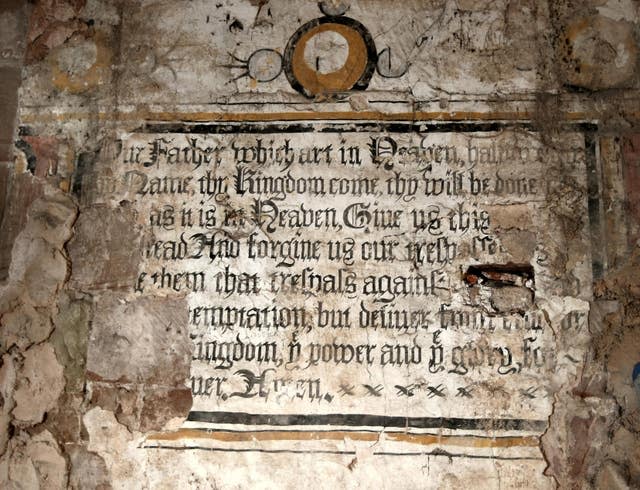 ur Father which art in Heaven, hallow
Name, thy Kingdom come, thy will be done
as it is in Heaven, Giue us this
ead And forgiue us our tresp
e them that trespass against
emptation, but deliuer from
ingdom, yͤ power and yͤ glory, For
uer. Amen.